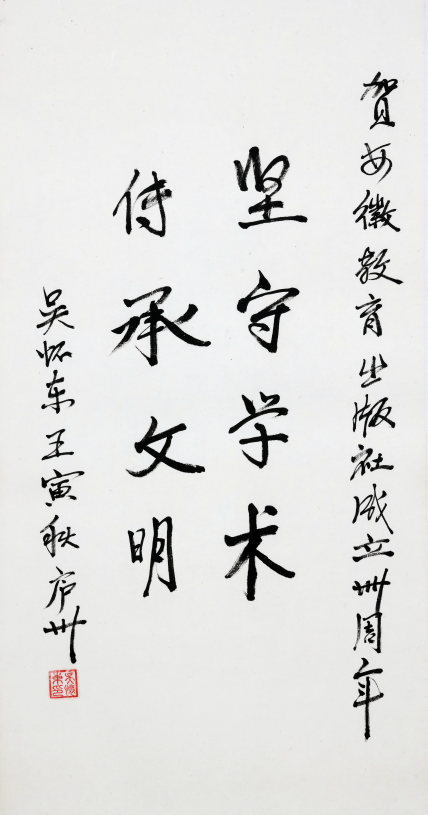 贺安徽教育出版社成立卌周年
坚守学术
传承文明
吴怀东壬寅秋庐州
吴怀东印